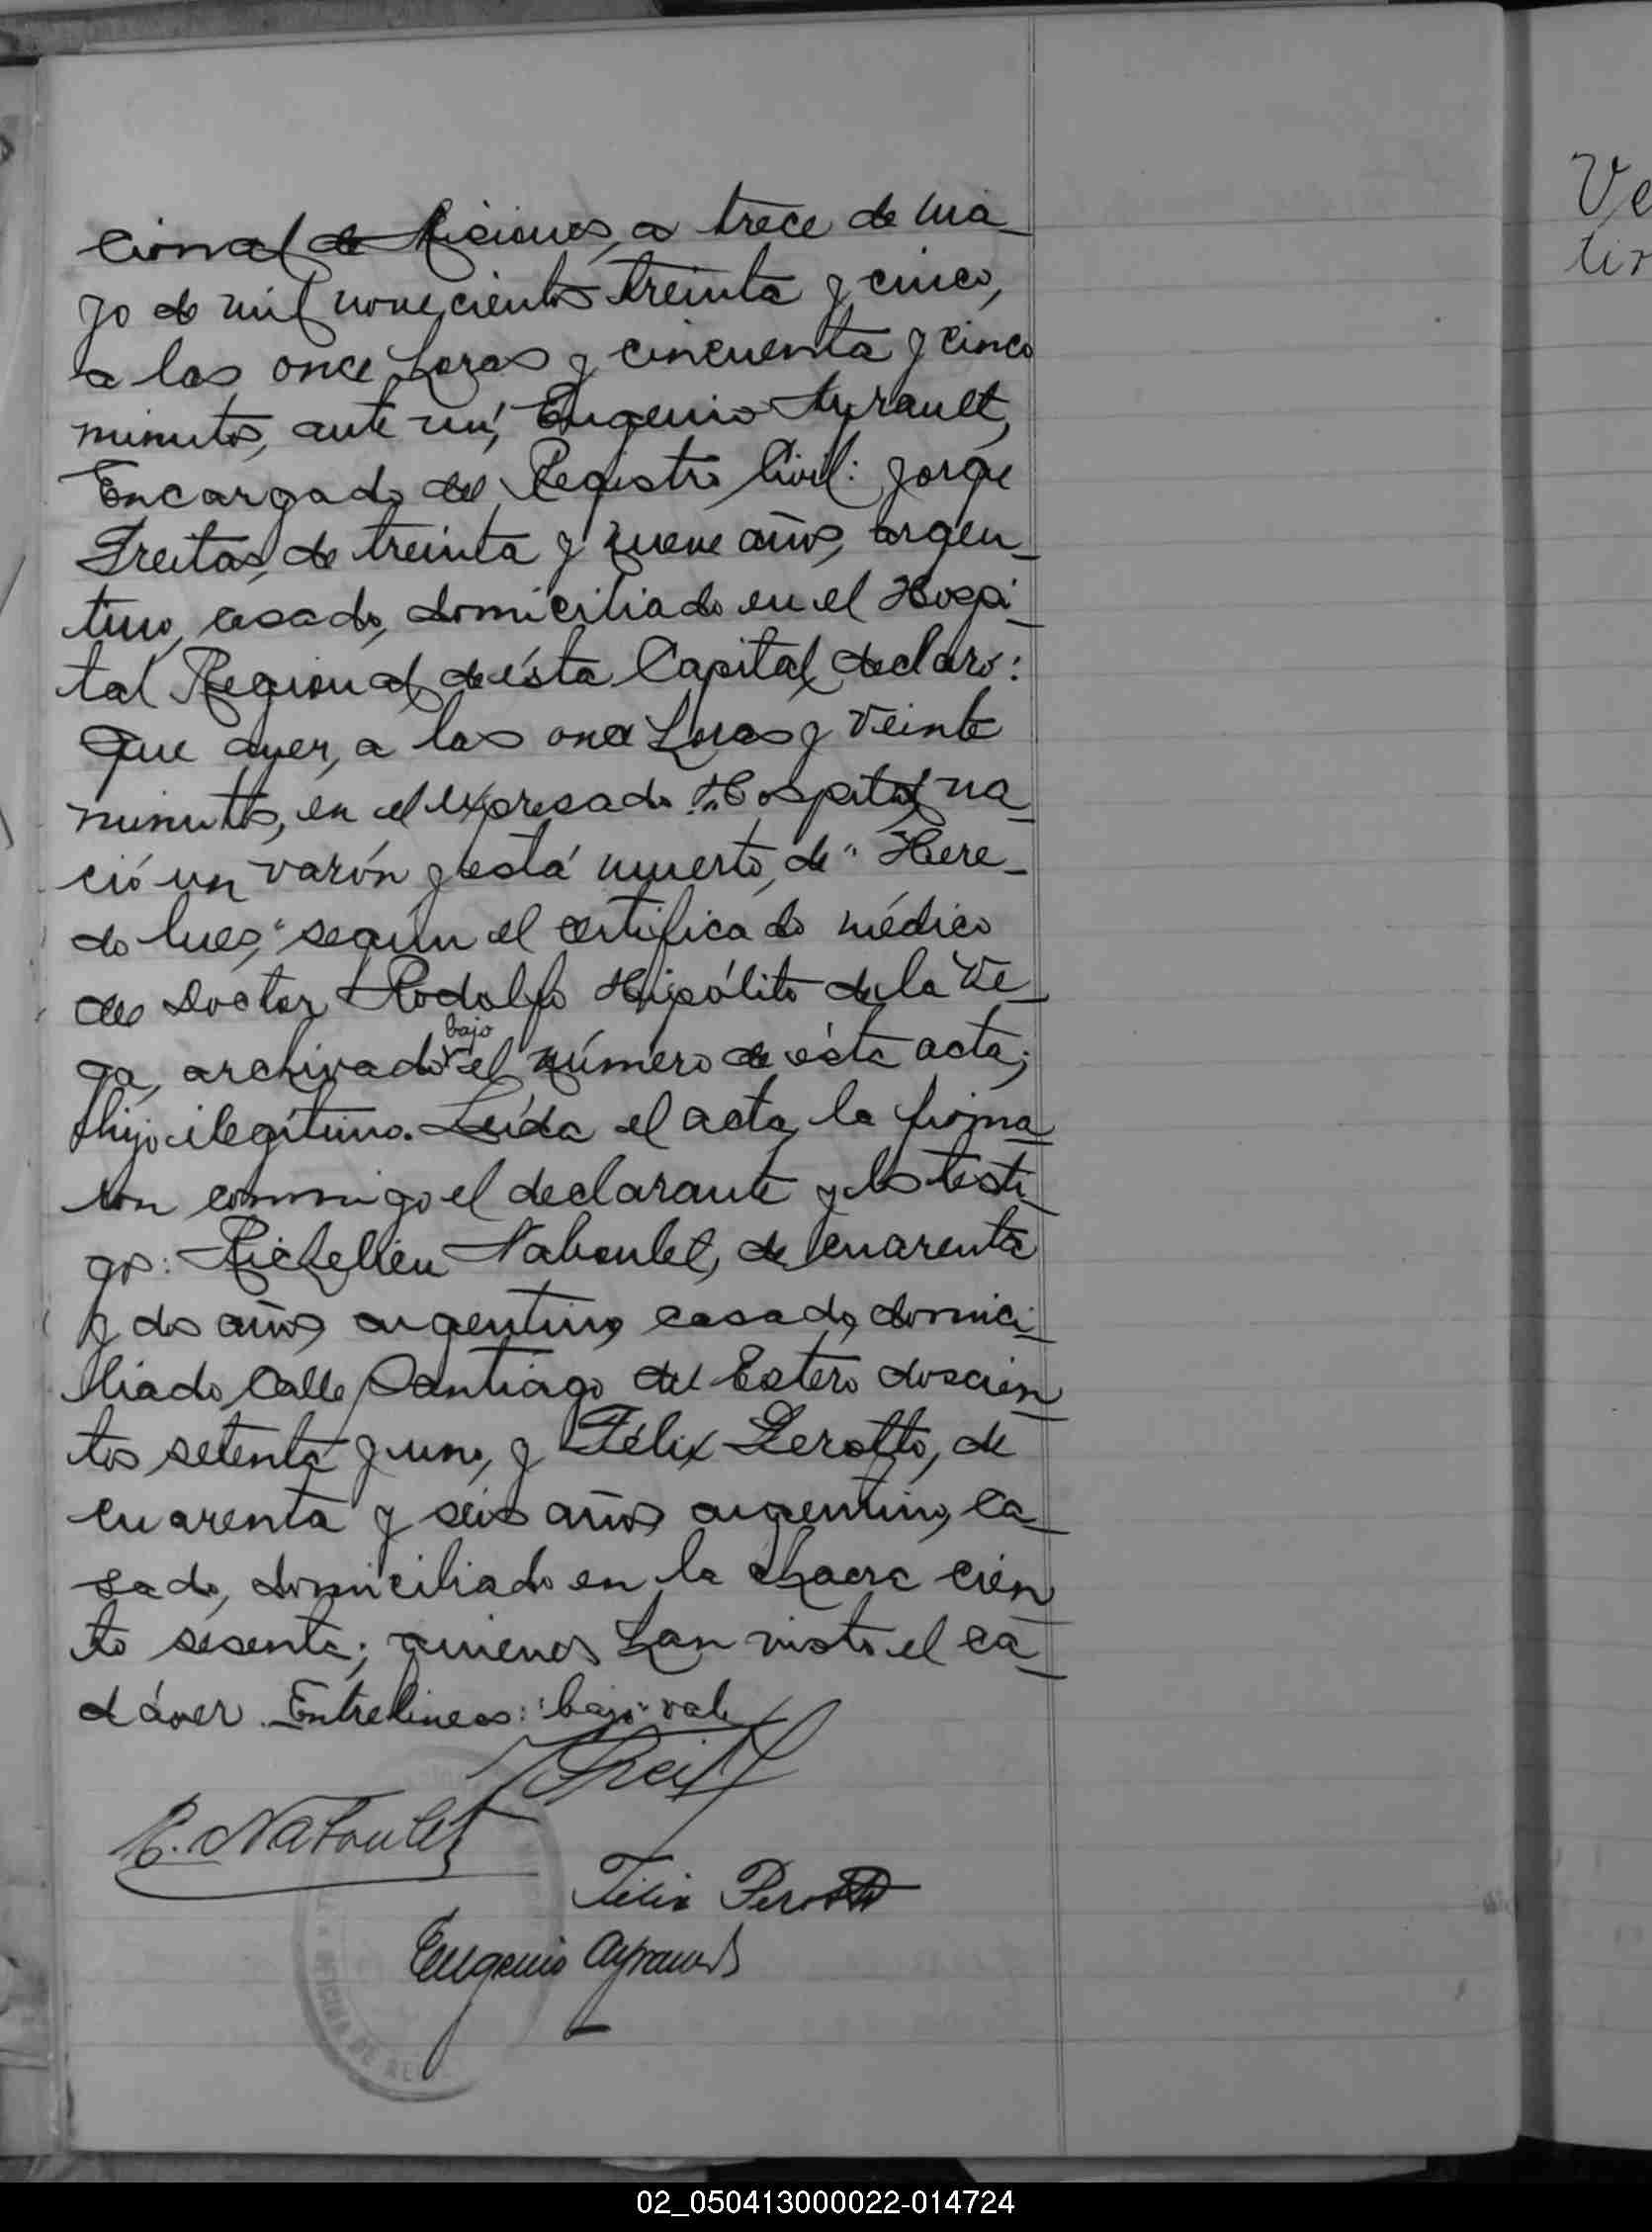 cional de Misiones, a trece de ma-
yo de mil novecientos treinta y cinco,
a las once horas y cincuenta y cinco
minutos, ante mí, Eugenio Ayrault,
Encargado del Registro Civil: Jorge
Freitas, de treinta y nueve años, argen-
tino, casado, domiciliado en el Hospi-
tal Regional de ésta Capital, declaró:
Que ayer, a las once horas y veinte
minutos, en el expresado Hospital, na-
ció un varón y está muerto, de "Here-
do lues," según el certificado médico
del Doctor Rodolfo Hipólito de la Ve-
bajo
ga, archivado el número de ésta acta;
hijo ilegítimo. Leída el acta, la firma-
ron conmigo el declarante y los testi-
gos: Richelieu Naboulet, de cuarenta
y dos años, argentino, casado, domici-
liado Calle Santiago del Estero doscien-
tos setenta y uno, y Félix Perotto, de
cuarenta y seis años, argentino, ca-
sado, domiciliado en la chacra cien-
to sesenta; quienes han visto el ca-
dáver. Entrelíneas: "bajo" vale
R. Naboulet
Félix Perotto
Eugenio Ayrault
OFICINA DE
Ve
02_050413000022-014724